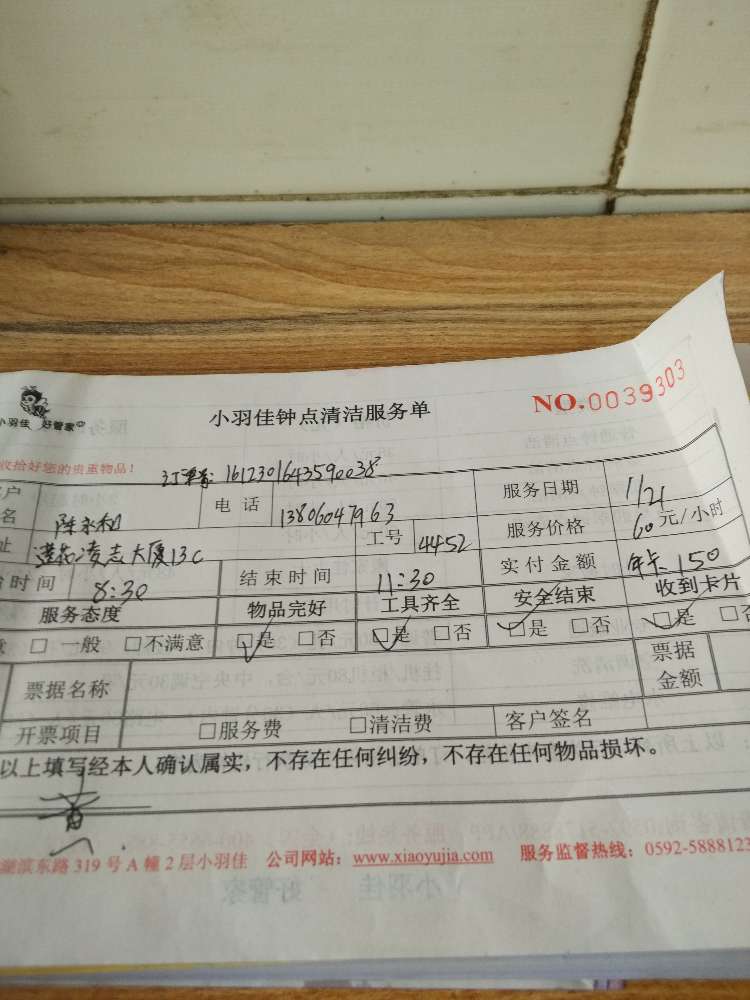 小羽佳 好管家
小羽佳钟点清洁服务单
NO.0039303
收拾好您的贵重物品!
订单号: 1612301643590038
户 名 陈永和 电话 13806047963 服务日期 1/21
址 莲花凌志大厦13C 工号 4452 服务价格 60元/小时
时间 8:30 结束时间 11:30 实付金额 年卡 150
服务态度 物品完好 工具齐全 安全结束 收到卡片
□一般 □不满意 □是 □否 □是 □否 □是 □否 □是 □否
票据名称 票据金额
开票项目 □服务费 □清洁费 客户签名
以上填写经本人确认属实,不存在任何纠纷,不存在任何物品损坏。
滨东路319号A幢2层小羽佳 公司网站:www.xiaoyujia.com 服务监督热线:0592-5888123